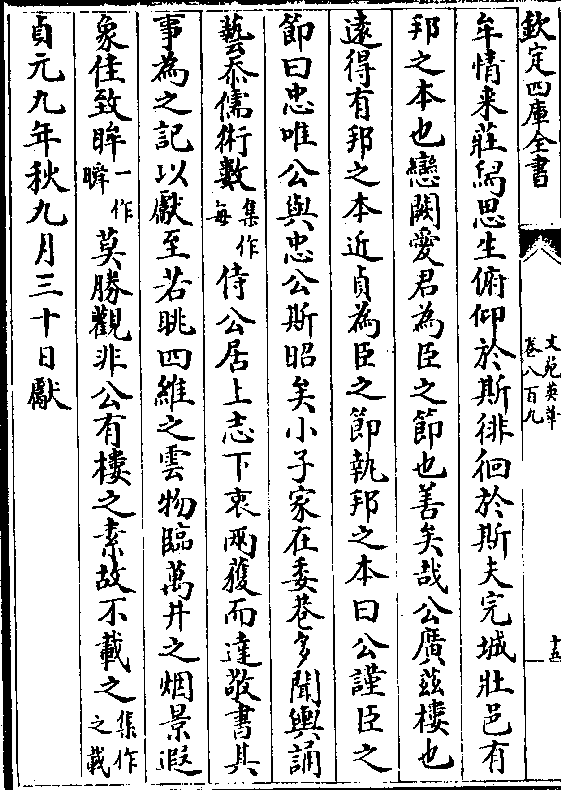 欽定四庫全書
文苑英華
卷八百九
十五
牟情来莊舄思生俯仰於斯徘徊於斯夫完城壯邑有
邦之本也戀闕愛君為臣之節也善矣哉公廣兹樓也
遠得有邦之本近貞為臣之節執邦之本曰公謹臣之
節曰忠唯公與忠公斯昭矣小子家在委巷多聞輿誦
藝忝儒術數集作每侍公居上志下衷兩獲而達敬書其
事為之記以獻至若眺四維之雲物臨萬井之烟景遐
象佳致眸一作瞬莫勝觀非公有樓之素故不載之集作之載
貞元九年秋九月三十日獻